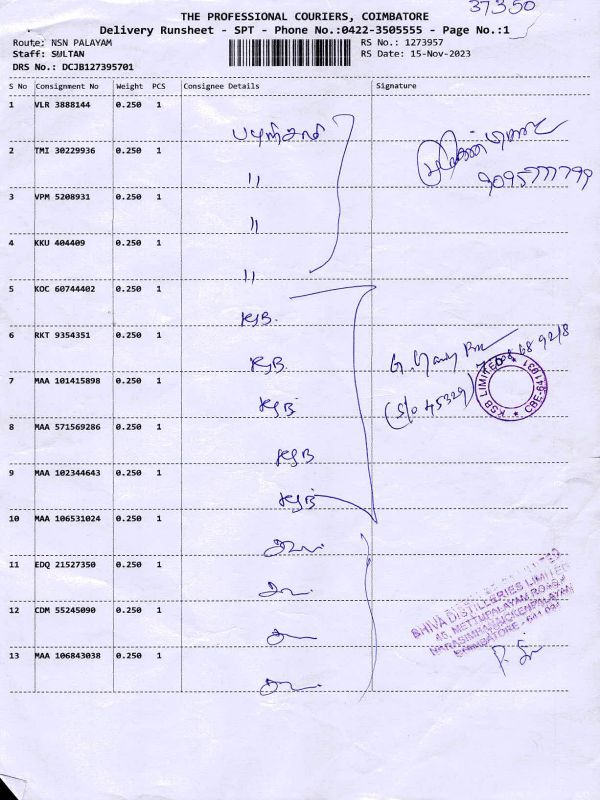 37350
THE PROFESSIONAL COURIERS, COIMBATORE
Delivery Runsheet - SPT - Phone No.:0422-3505555 - Page No.:1
Route: NSN PALAYAM
Staff: SULTAN
DRS No.: DCJB127395701
RS No.: 1273957
RS Date: 15-Nov-2023
S No Consignment No Weight PCS Consignee Details Signature
1 VLR 3888144 0.250 1
2 TMI 30229936 0.250 1
9095777799
3 VPM 5208931 0.250 1 "
4 KKU 404409 0.250 1 "
5 KOC 60744402 0.250 1 "
KSB.
6 RKT 9354351 0.250 1
KSB.
7 MAA 101415898 0.250 1
KSB
(S/o 45329)
KSB LIMITED * CBE-641031 *
8 MAA 571569286 0.250 1
KSB
9 MAA 102344643 0.250 1
KSB
10 MAA 106531024 0.250 1
11 EDQ 21527350 0.250 1
SHIVA DISTILLERIES LIMITED
METTUPALAYAM ROAD,
NARASIMHANAICKENPALAYAM
COIMBATORE - 641 031
12 CDM 55245090 0.250 1
13 MAA 106843038 0.250 1